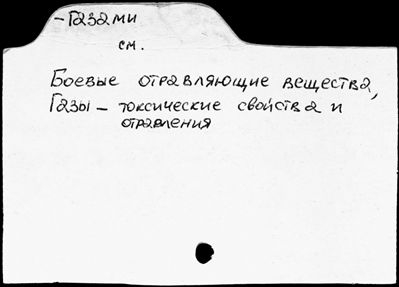 -Газами
см.
Боевые отравляющие вещества,
Газы - токсические свойства и
отравления